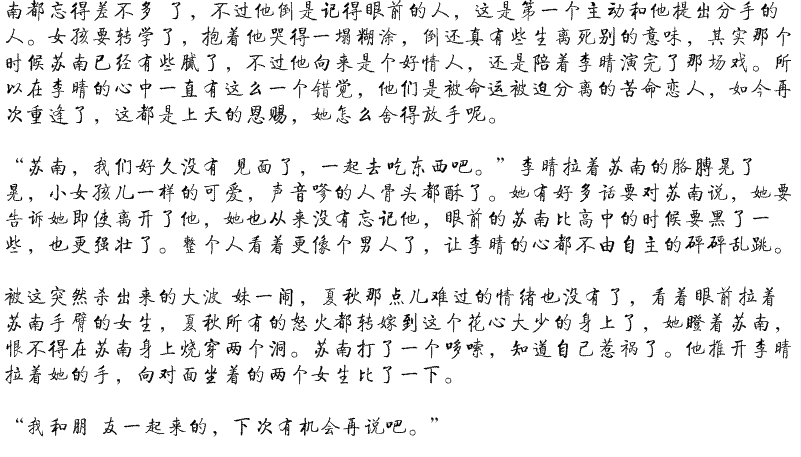 南都忘得差不多 了，不过他倒是记得眼前的人，这是第一个主动和他提出分手的
人。女孩要转学了，抱着他哭得一塌糊涂，倒还真有些生离死别的意味，其实那个
时候苏南已经有些腻了，不过他向来是个好情人，还是陪着李晴演完了那场戏。所
以在李晴的心中一直有这么一个错觉，他们是被命运被迫分离的苦命恋人，如今再
次重逢了，这都是上天的恩赐，她怎么舍得放手呢。
“苏南，我们好久没有 见面了，一起去吃东西吧。”李晴拉着苏南的胳膊晃了
晃，小女孩儿一样的可爱，声音嗲的人骨头都酥了。她有好多话要对苏南说，她要
告诉她即使离开了他，她也从来没有忘记他，眼前的苏南比高中的时候要黑了一
些，也更强壮了。整个人看着更像个男人了，让李晴的心都不由自主的砰砰乱跳。
被这突然杀出来的大波 妹一闹，夏秋那点儿难过的情绪也没有了，看着眼前拉着
苏南手臂的女生，夏秋所有的怒火都转嫁到这个花心大少的身上了，她瞪着苏南，
恨不得在苏南身上烧穿两个洞。苏南打了一个哆嗦，知道自己惹祸了。他推开李晴
拉着她的手，向对面坐着的两个女生比了一下。
“我和朋 友一起来的，下次有机会再说吧。”